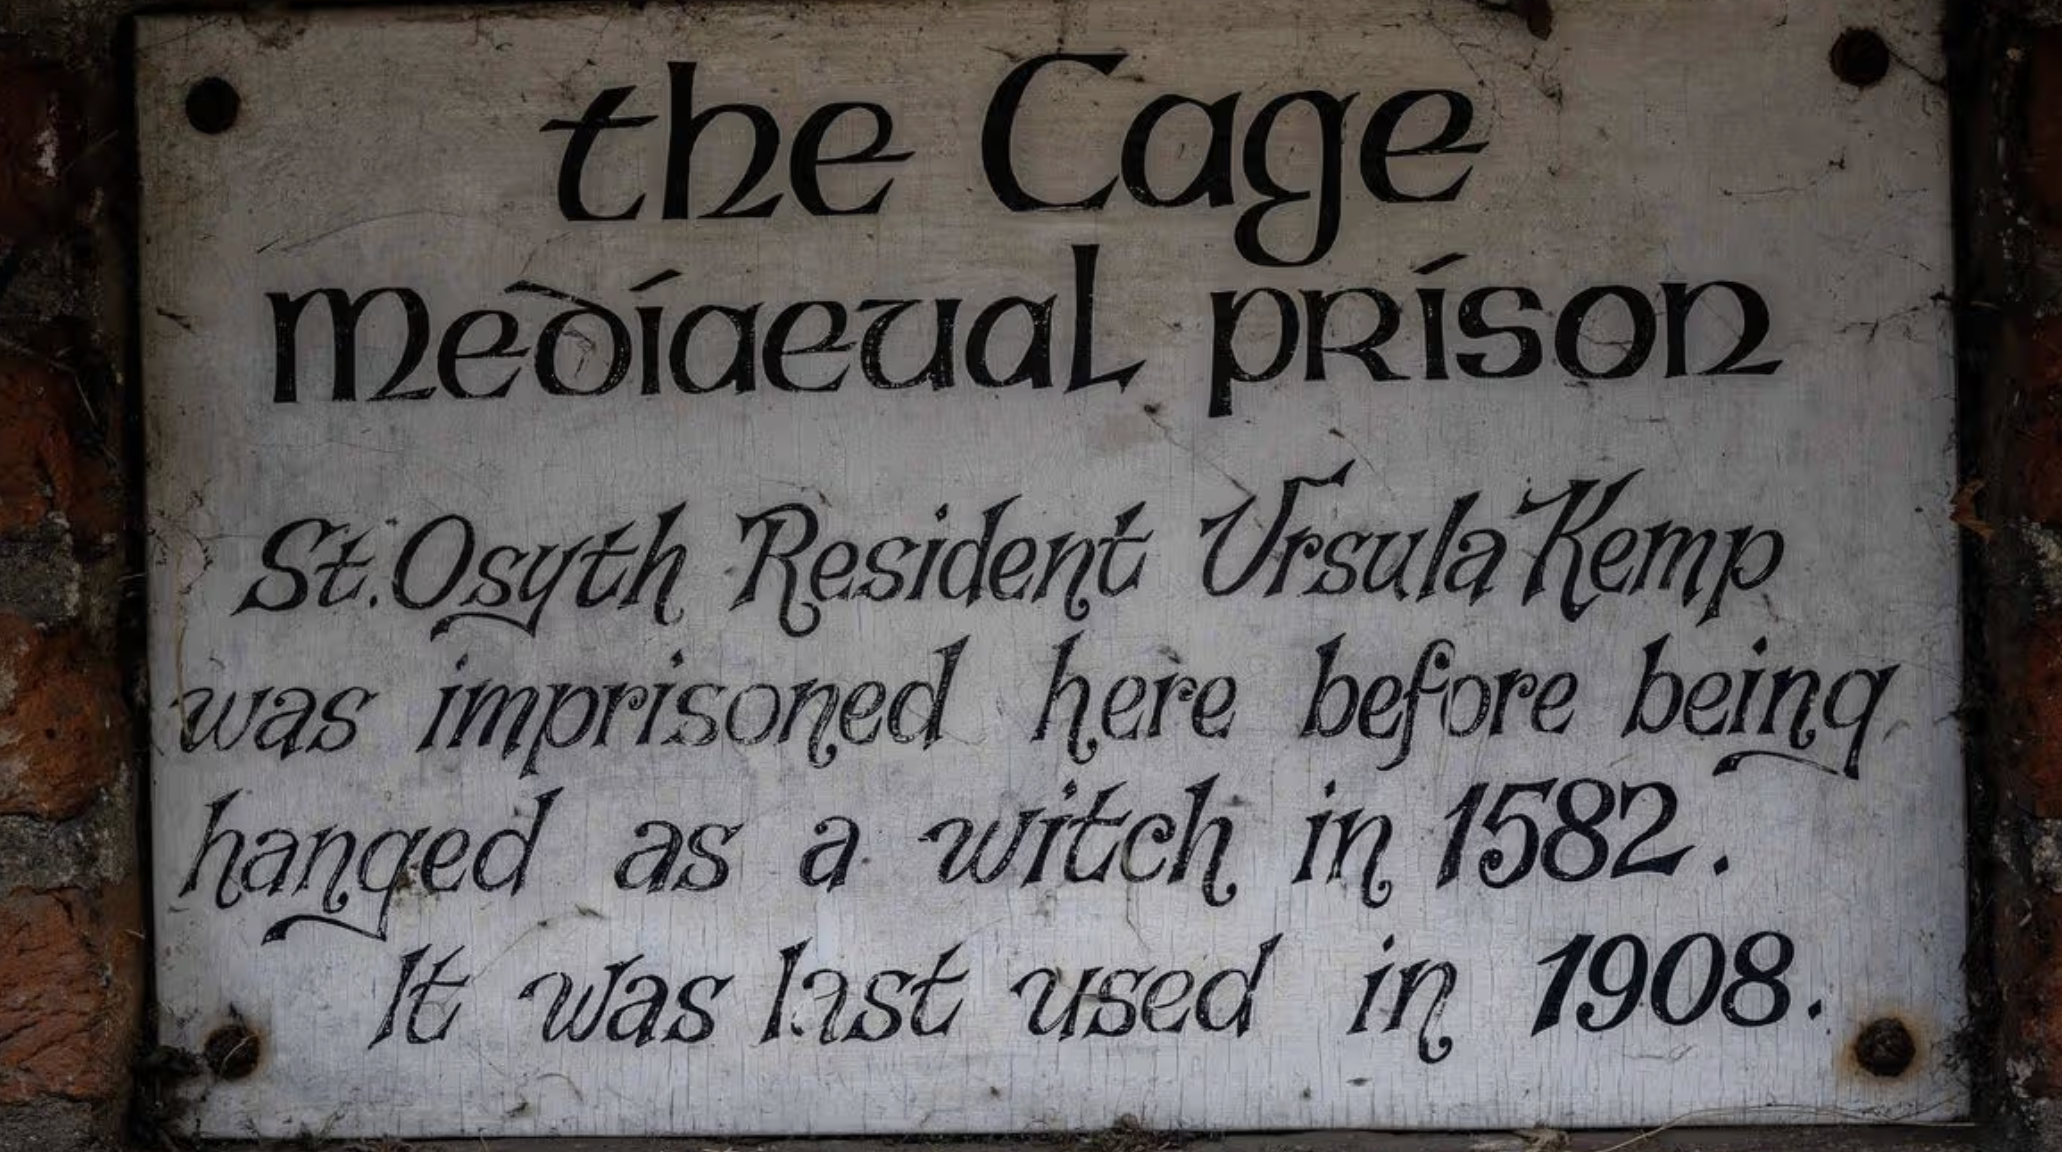 the Cage
Mediaeval prison
St. Osyth Resident Ursula Kemp
was imprisoned here before being
hanged as a witch in 1582.
It was last used in 1908.